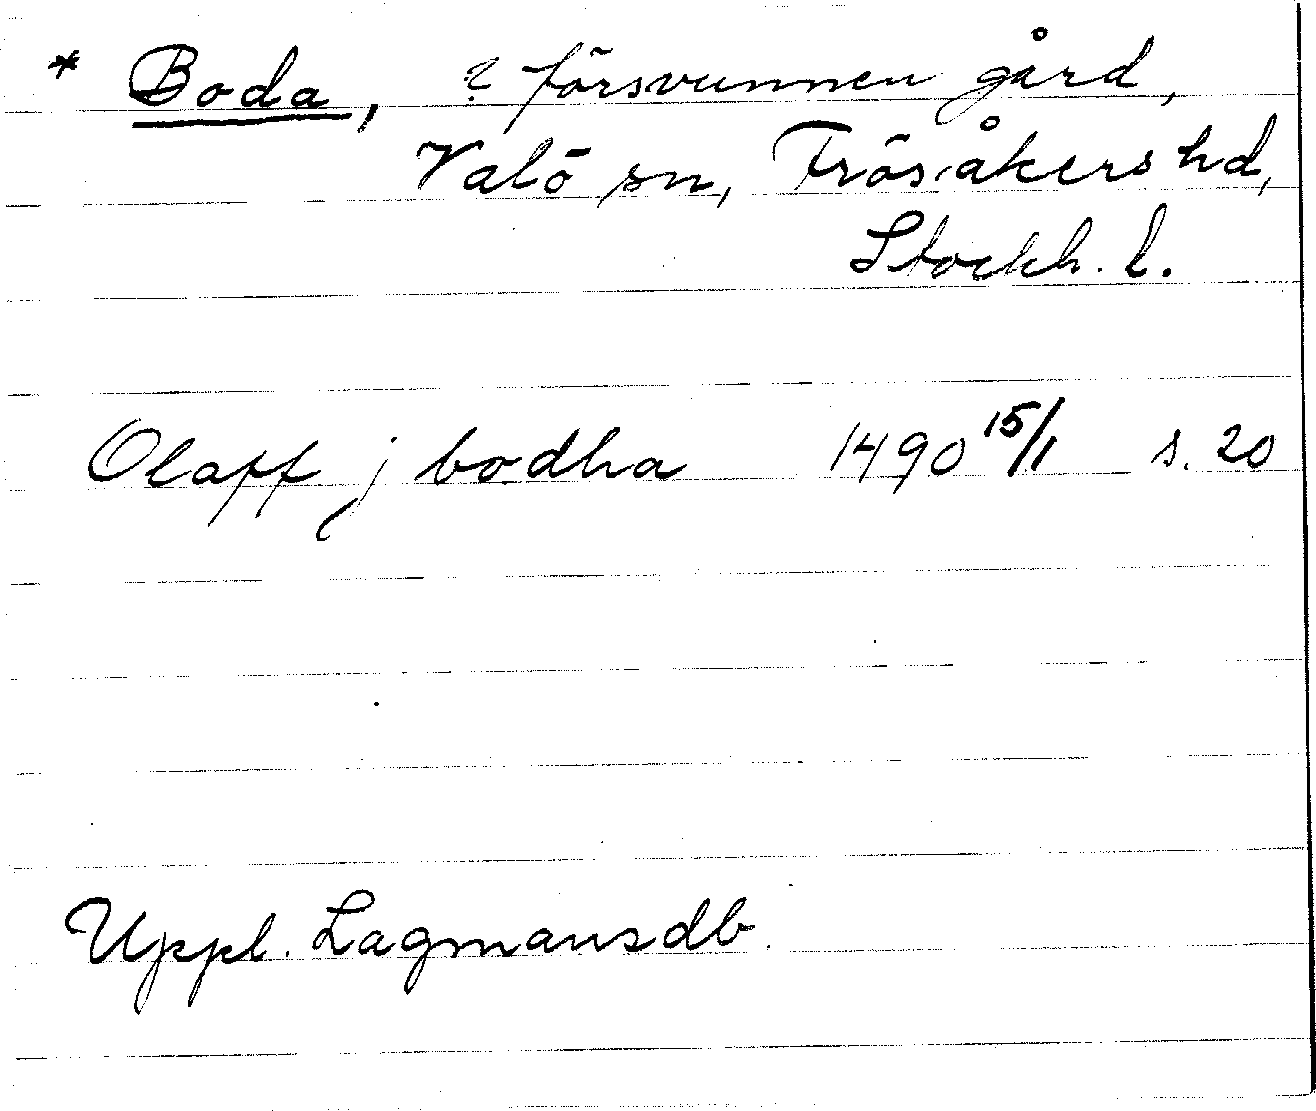 * Boda, ? försvunnen gård,
Valö sn, Frösåkers hd,
Stockh. l.
Olaff j bodha 1490 15/1 s. 20
Uppl. Lagmansdb.